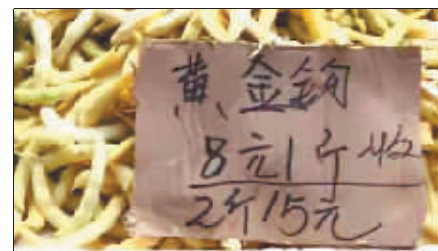 黄金钩
8元1斤
2斤15元